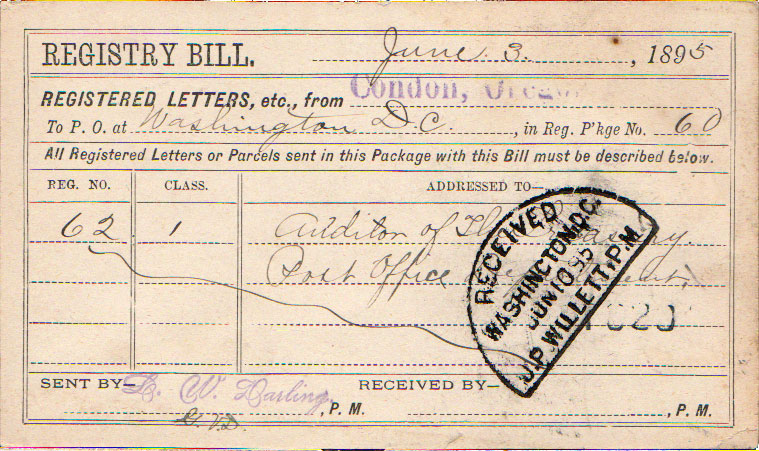 REGISTRY BILL. June 3, 1895
REGISTERED LETTERS, etc., from Condon, Oregon
To P. O. at Washington D.C., in Reg. P'kge No. 60
All Registered Letters or Parcels sent in this Package with this Bill must be described below.
REG. NO. CLASS. ADDRESSED TO—
62 1 Auditor of The Treasury.
Post Office
RECEIVED
WASHINGTON, D.C.
JUN 10 95
J.P. WILLETT, P.M.
SENT BY— W. Darling, P. M. RECEIVED BY— , P. M.